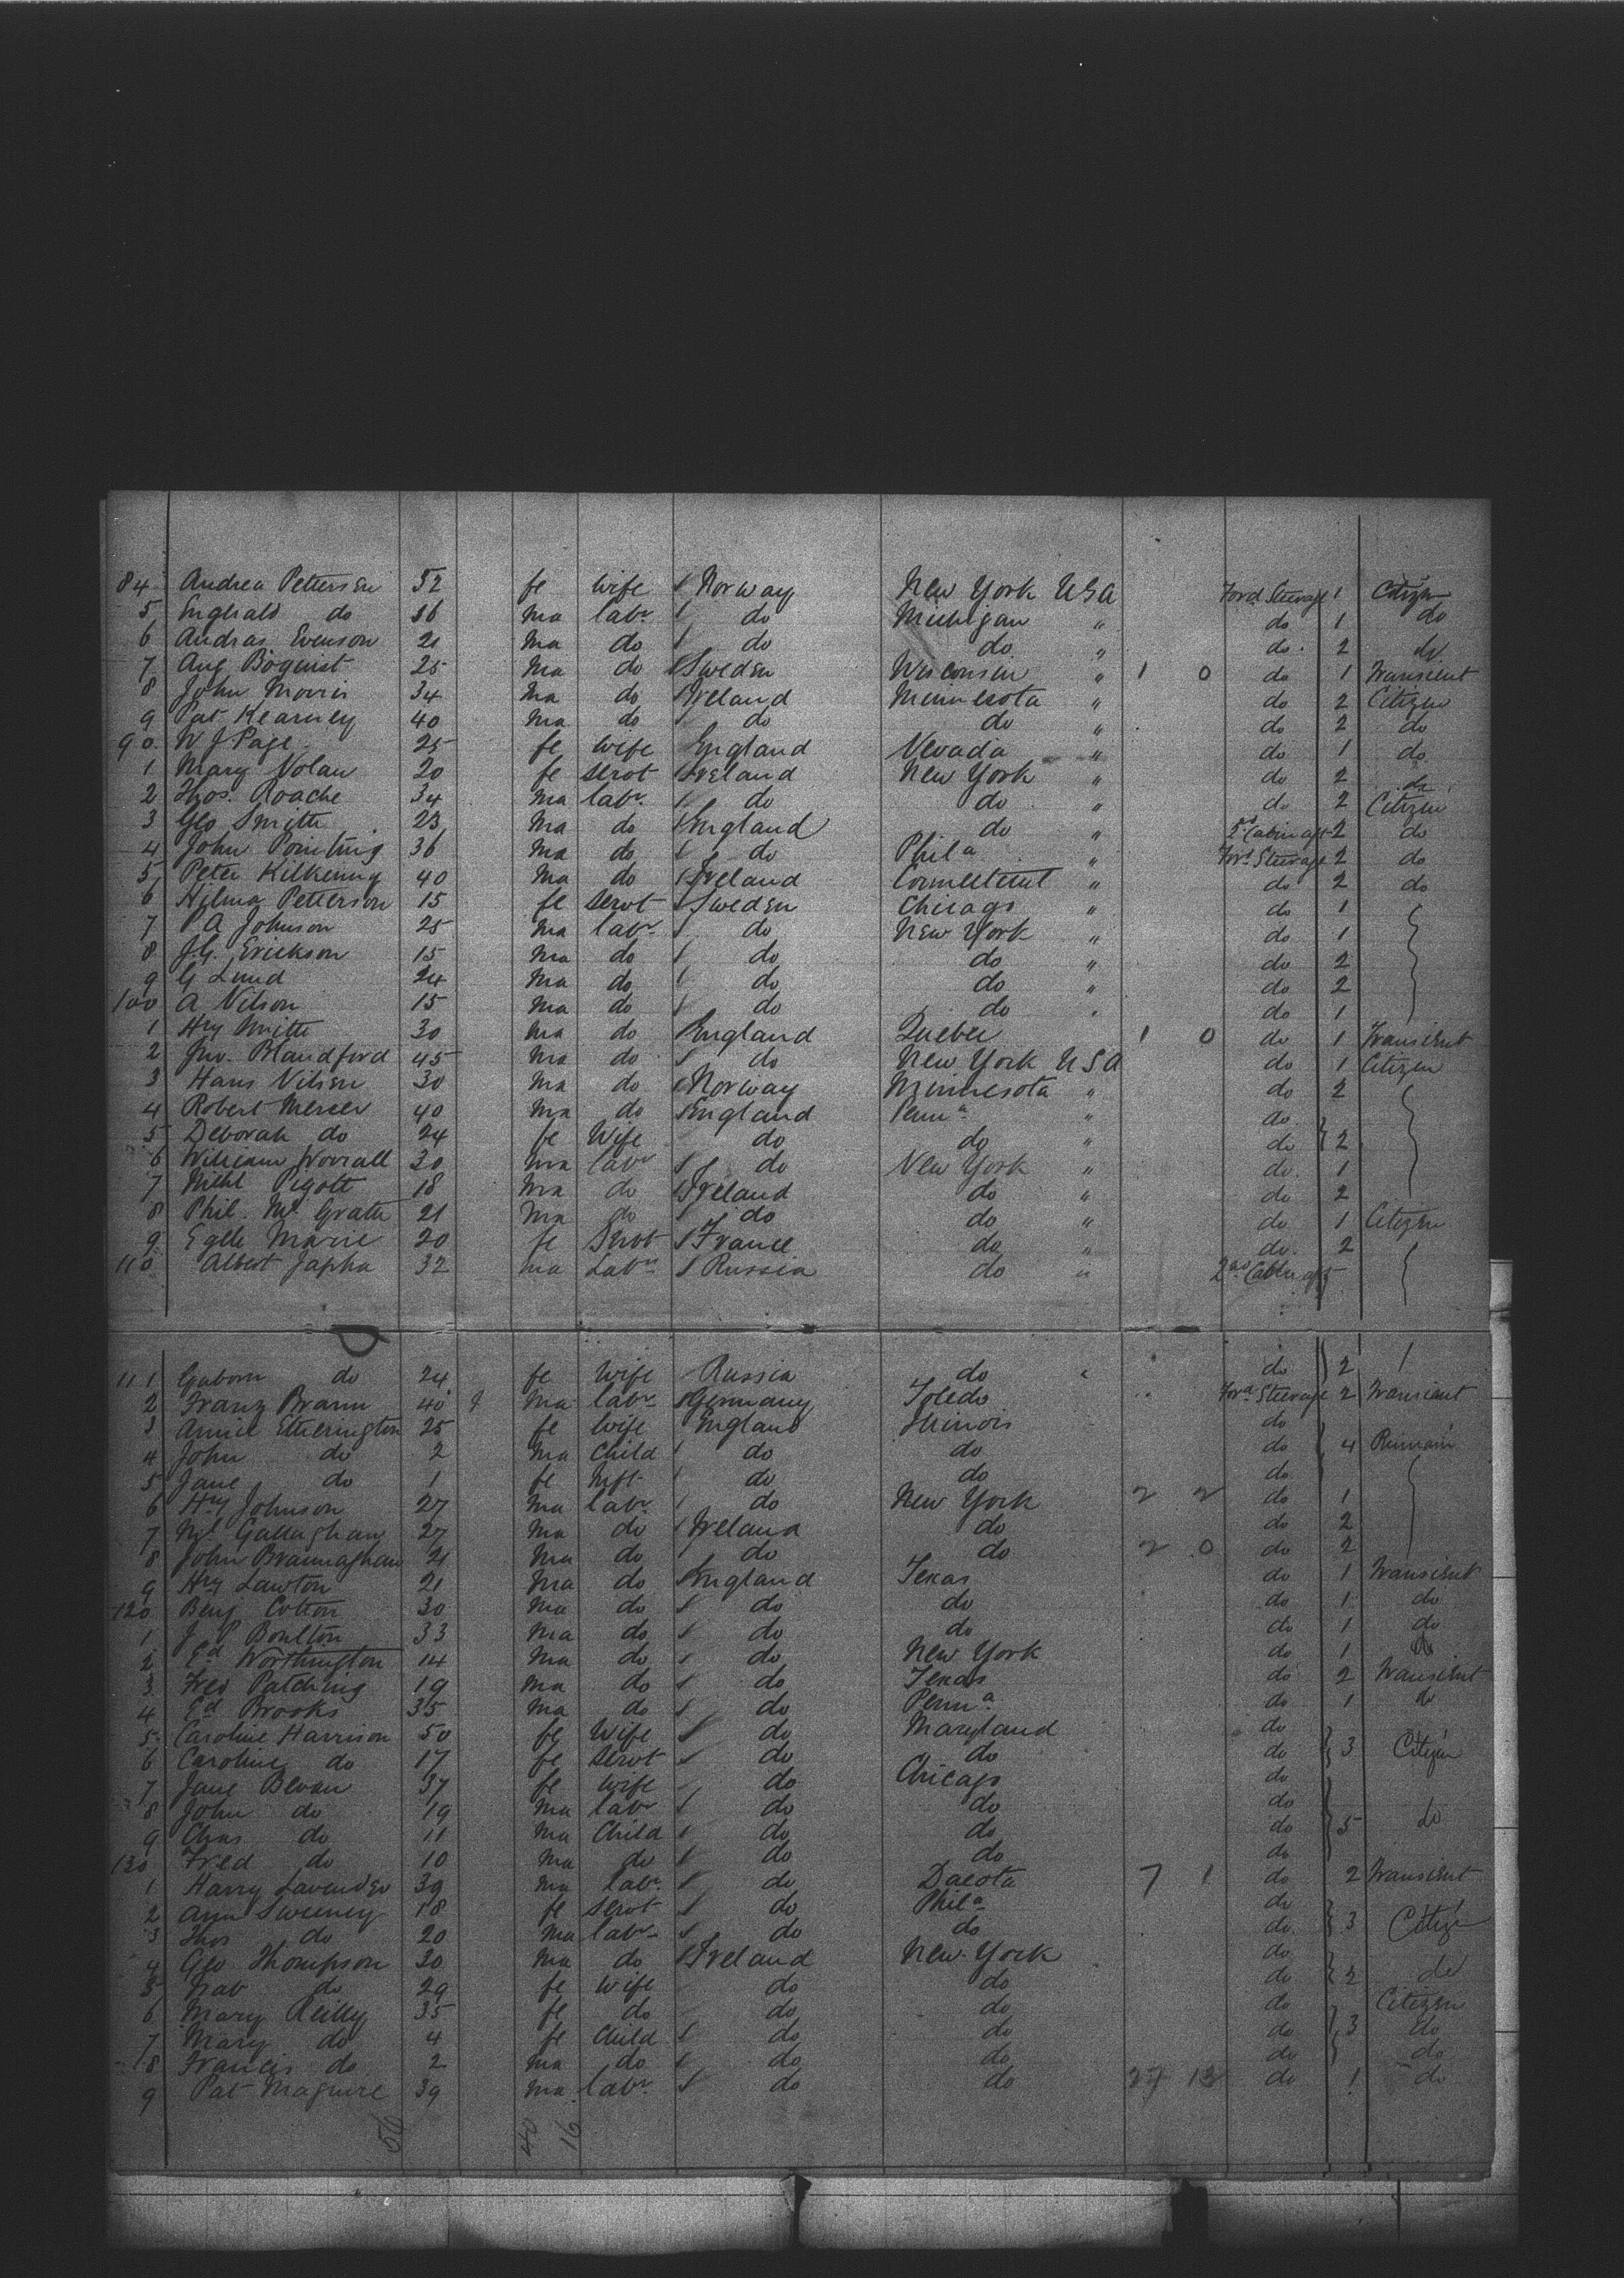 84 Andrea Pettersen 52 fe wife Norway New York USA Ford Steerage 1 Citizen
5 Inghald do 16 ma labr do Michigan " do 1 do
6 Andras Evenson 21 ma do do do " do 2 do
7 Aug Boquist 25 ma do Sweden Wisconsin " 1 0 do 1 Transient
8 John Morris 34 ma do Ireland Minnesota " do 2 Citizen
9 Pat Kearney 40 ma do do do " do 2 do
90 W J Page 25 fe wife England Nevada " do 1 do
1 Mary Nolan 20 fe servt Ireland New York " do 2 do
2 Thos. Roache 34 ma labr do do " do 2 Citizen
3 Geo Smith 23 ma do England do " 2nd Cabin aft 2 do
4 John Pointing 36 ma do do Phila " Ford Steerage 2 do
5 Peter Kilkenny 40 ma do Ireland Connecticut " do 2 do
6 Hilma Petterson 15 fe servt Sweden Chicago " do 1
7 P A Johnson 25 ma labr do New York " do 1
8 J.G. Erickson 15 ma do do do " do 2
9 G Lund 24 ma do do do " do 2
100 A Nilson 15 ma do do do " do 1
1 Hry Smith 30 ma do England Quebec 1 0 do 1 Transient
2 Jno. Blandford 45 ma do do New York USA do 1 Citizen
3 Hans Nilsen 30 ma do Norway Minnesota " do 2
4 Robert Mercer 40 ma do England Penna " do
5 Deborah do 24 fe Wife do do " do 2
6 William Worrall 30 ma labr do New York " do 1
7 Michl Pigott 18 ma do Ireland do " do 2
8 Phil. McGrath 21 ma do do do " do 1 Citizen
9 Egle Marie 20 fe Servt France do " do 2
110 Albert Japha 32 ma Labr Russia do " 2nd Cabin aft
111 do 24 fe wife Russia do " do 2
2 Franz Brann 40 ma labr Germany Toledo Ford Steerage 2 Transient
3 Annie Etherington 25 fe wife England Illinois do
4 John do 2 ma Child do do do 4 Remain
5 Jane do 1 fe Inft do do do
6 Hry Johnson 27 ma labr do New York 2 2 do 1
7 Ml Gallaghan 27 ma do Ireland do do 2
8 John Brannaghan 21 ma do do do 2 0 do 2
9 Hry Lawton 21 ma do England Texas do 1 Transient
120 Benj Cotton 30 ma do do do do 1 do
1 J P Boulton 33 ma do do do do 1 do
2 Ed Worthington 14 ma do do New York do 1 do
3 Fred Patching 19 ma do do Texas do 2 Transient
4 Ed Brooks 35 ma do do Penna do 1 do
5 Caroline Harrison 50 fe Wife do Maryland do
6 Caroline do 17 fe servt do do do 3 Citizen
7 Jane Bevan 37 fe wife do Chicago do
8 John do 19 ma labr do do do
9 Chas do 11 ma Child do do do 5 do
130 Fred do 10 ma do do do do
1 Harry Lavender 39 ma labr do Dacota 7 1 do 2 Transient
2 Ann Sweeney 18 fe servt do Phila do
3 Thos do 20 ma labr do do do 3 Citizn
4 Geo Thompson 30 ma do Ireland New York do
5 do 29 fe wife do do do 2 do
6 Mary Reilly 35 fe do do do do Citizen
7 Mary do 4 fe Child do do do 3 do
8 Francis do 2 ma do do do do do
9 Pat Maguire 39 ma labr do do 27 13 do 1 do
56 40 16